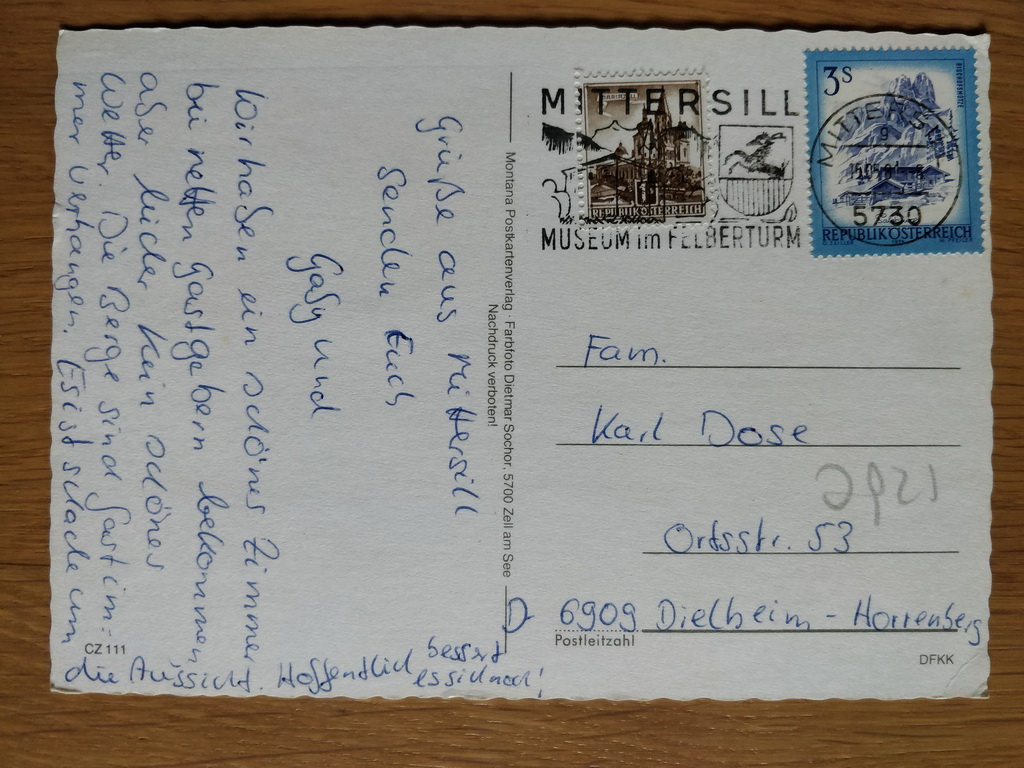 Grüße aus Mittersill
senden Euch
Gaby und
Wir haben ein schönes Zimmer
bei netten Gastgebern bekommen
aber leider kein schönes
Wetter. Die Berge sind fast im-
mer verhangen. Es ist schade um
die Aussicht. Hoffentlich bessert
es sich noch!
CZ 111
Montana Postkartenverlag · Farbfoto Dietmar Sochor, 5700 Zell am See
Nachdruck verboten!
MITTERSILL
MUSEUM im FELBERTURM
REPUBLIK ÖSTERREICH
3 S
REPUBLIK ÖSTERREICH
MITTERSILL
5730
Fam.
Karl Dose
Ortsstr. 53
D 6909 Dielheim - Horrenberg
Postleitzahl
DFKK